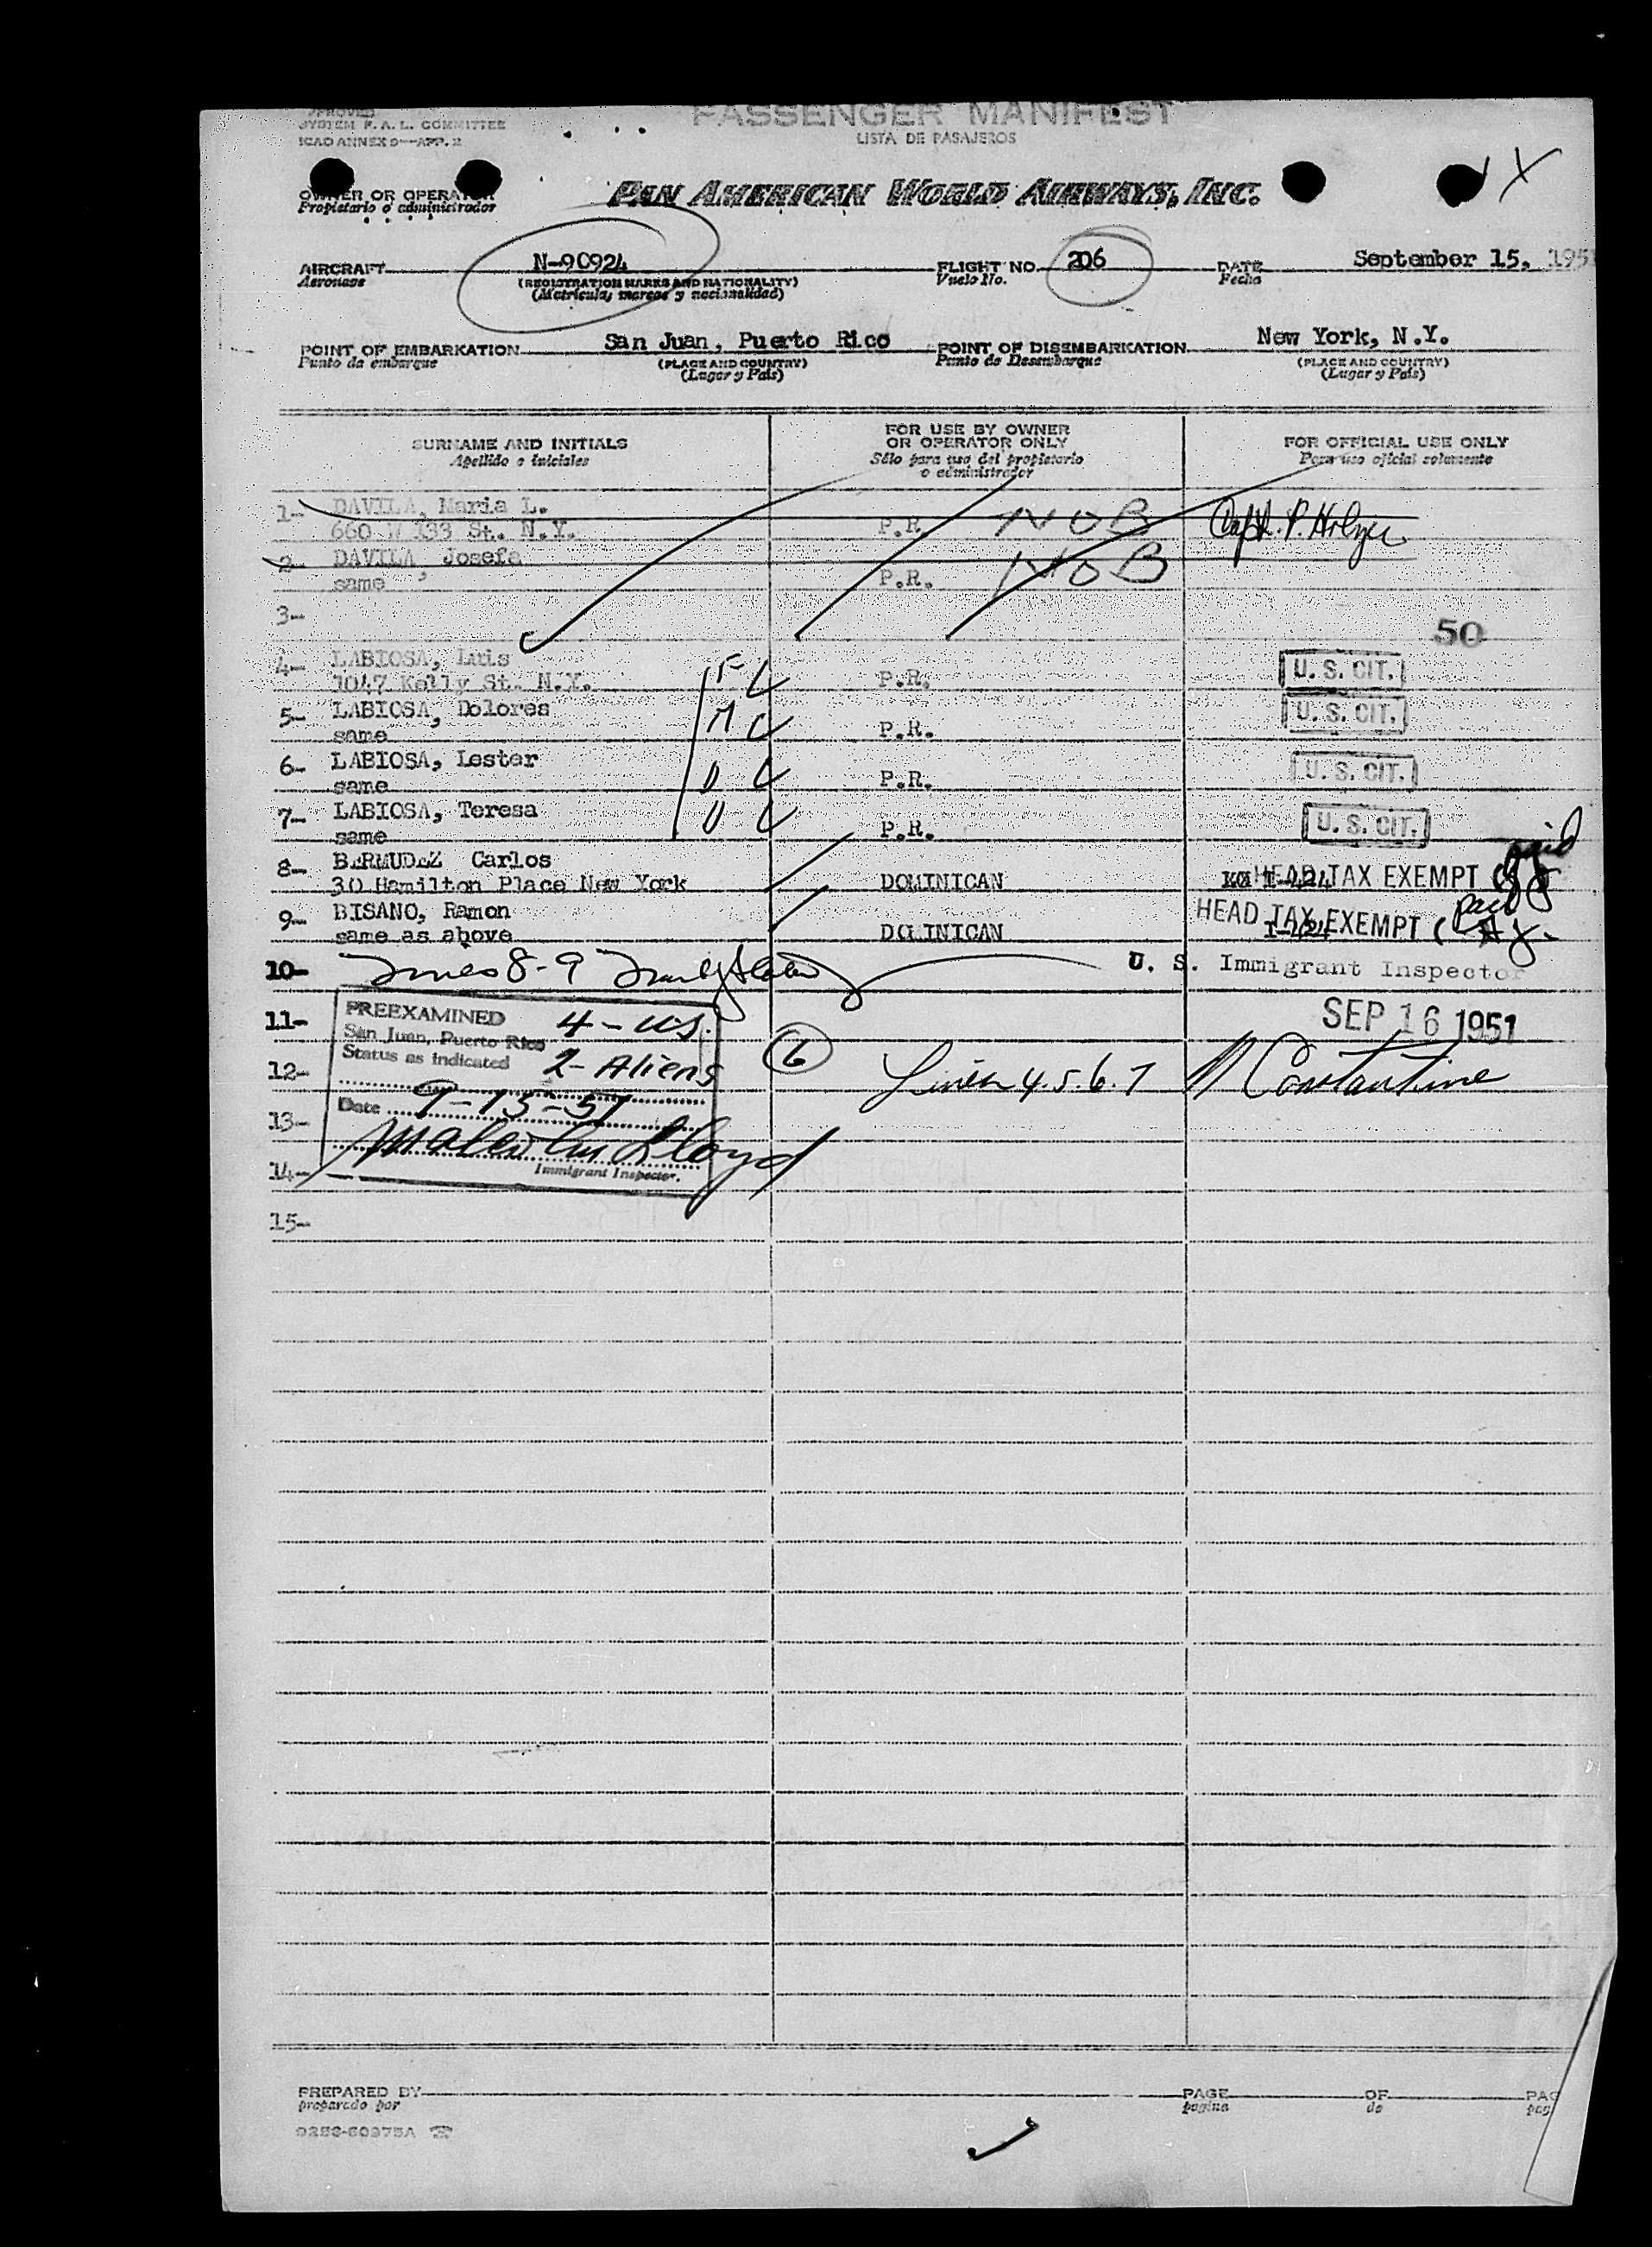 APPROVED
SYSTEM F.A.L. COMMITTEE
ICAO ANNEX 9—APP. 2
PASSENGER MANIFEST
LISTA DE PASAJEROS
OWNER OR OPERATOR
Propietario o administrador
PAN AMERICAN WORLD AIRWAYS, INC.
X
AIRCRAFT N-90924 FLIGHT NO. 206 DATE September 15, 195
Aeronave (REGISTRATION MARKS AND NATIONALITY) Vuelo No. Fecha
(Matrícula, marcas y nacionalidad)
POINT OF EMBARKATION San Juan, Puerto Rico POINT OF DISEMBARKATION New York, N.Y.
Punto de embarque (PLACE AND COUNTRY) Punto de Desembarque (PLACE AND COUNTRY)
(Lugar y País) (Lugar y País)
SURNAME AND INITIALS FOR USE BY OWNER OR OPERATOR ONLY FOR OFFICIAL USE ONLY
Apellido e iniciales Sólo para uso del propietario o administrador Para uso oficial solamente
1- DAVILA, Maria L.
660 W 133 St. N.Y. P.R. NOB Capt. P.
2- DAVILA, Josefa
same P.R. NOB
3-
50
4- LABIOSA, Luis F
1047 Kelly St. N.Y. P.R. U. S. CIT.
5- LABIOSA, Dolores M
same P.R. U. S. CIT.
6- LABIOSA, Lester
same P.R. U. S. CIT.
7- LABIOSA, Teresa
same P.R. U. S. CIT.
8- BERMUDEZ Carlos paid
30 Hamilton Place New York DOMINICAN I-424 HEAD TAX EXEMPT (
9- BISANO, Ramon paid
same as above DOMINICAN HEAD TAX EXEMPT (
10- 8-9 U. S. Immigrant Inspector
11- PREEXAMINED 4-US. SEP 16 1951
San Juan, Puerto Rico
Status as indicated 2-Aliens
12- 6 Lines 4.5.6.7 N Constantine
Date 9-15-51
13-
Lloyd
14- Immigrant Inspector.
15-
PREPARED BY PAGE OF PAG
preparado por pagina de pag
9256-60975A